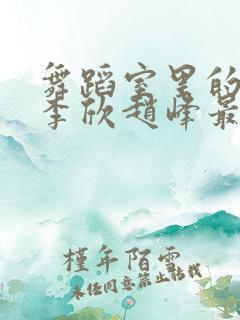 舞蹈室里的
李欣赵峰最
槿年陌雪
未经同意禁止转载